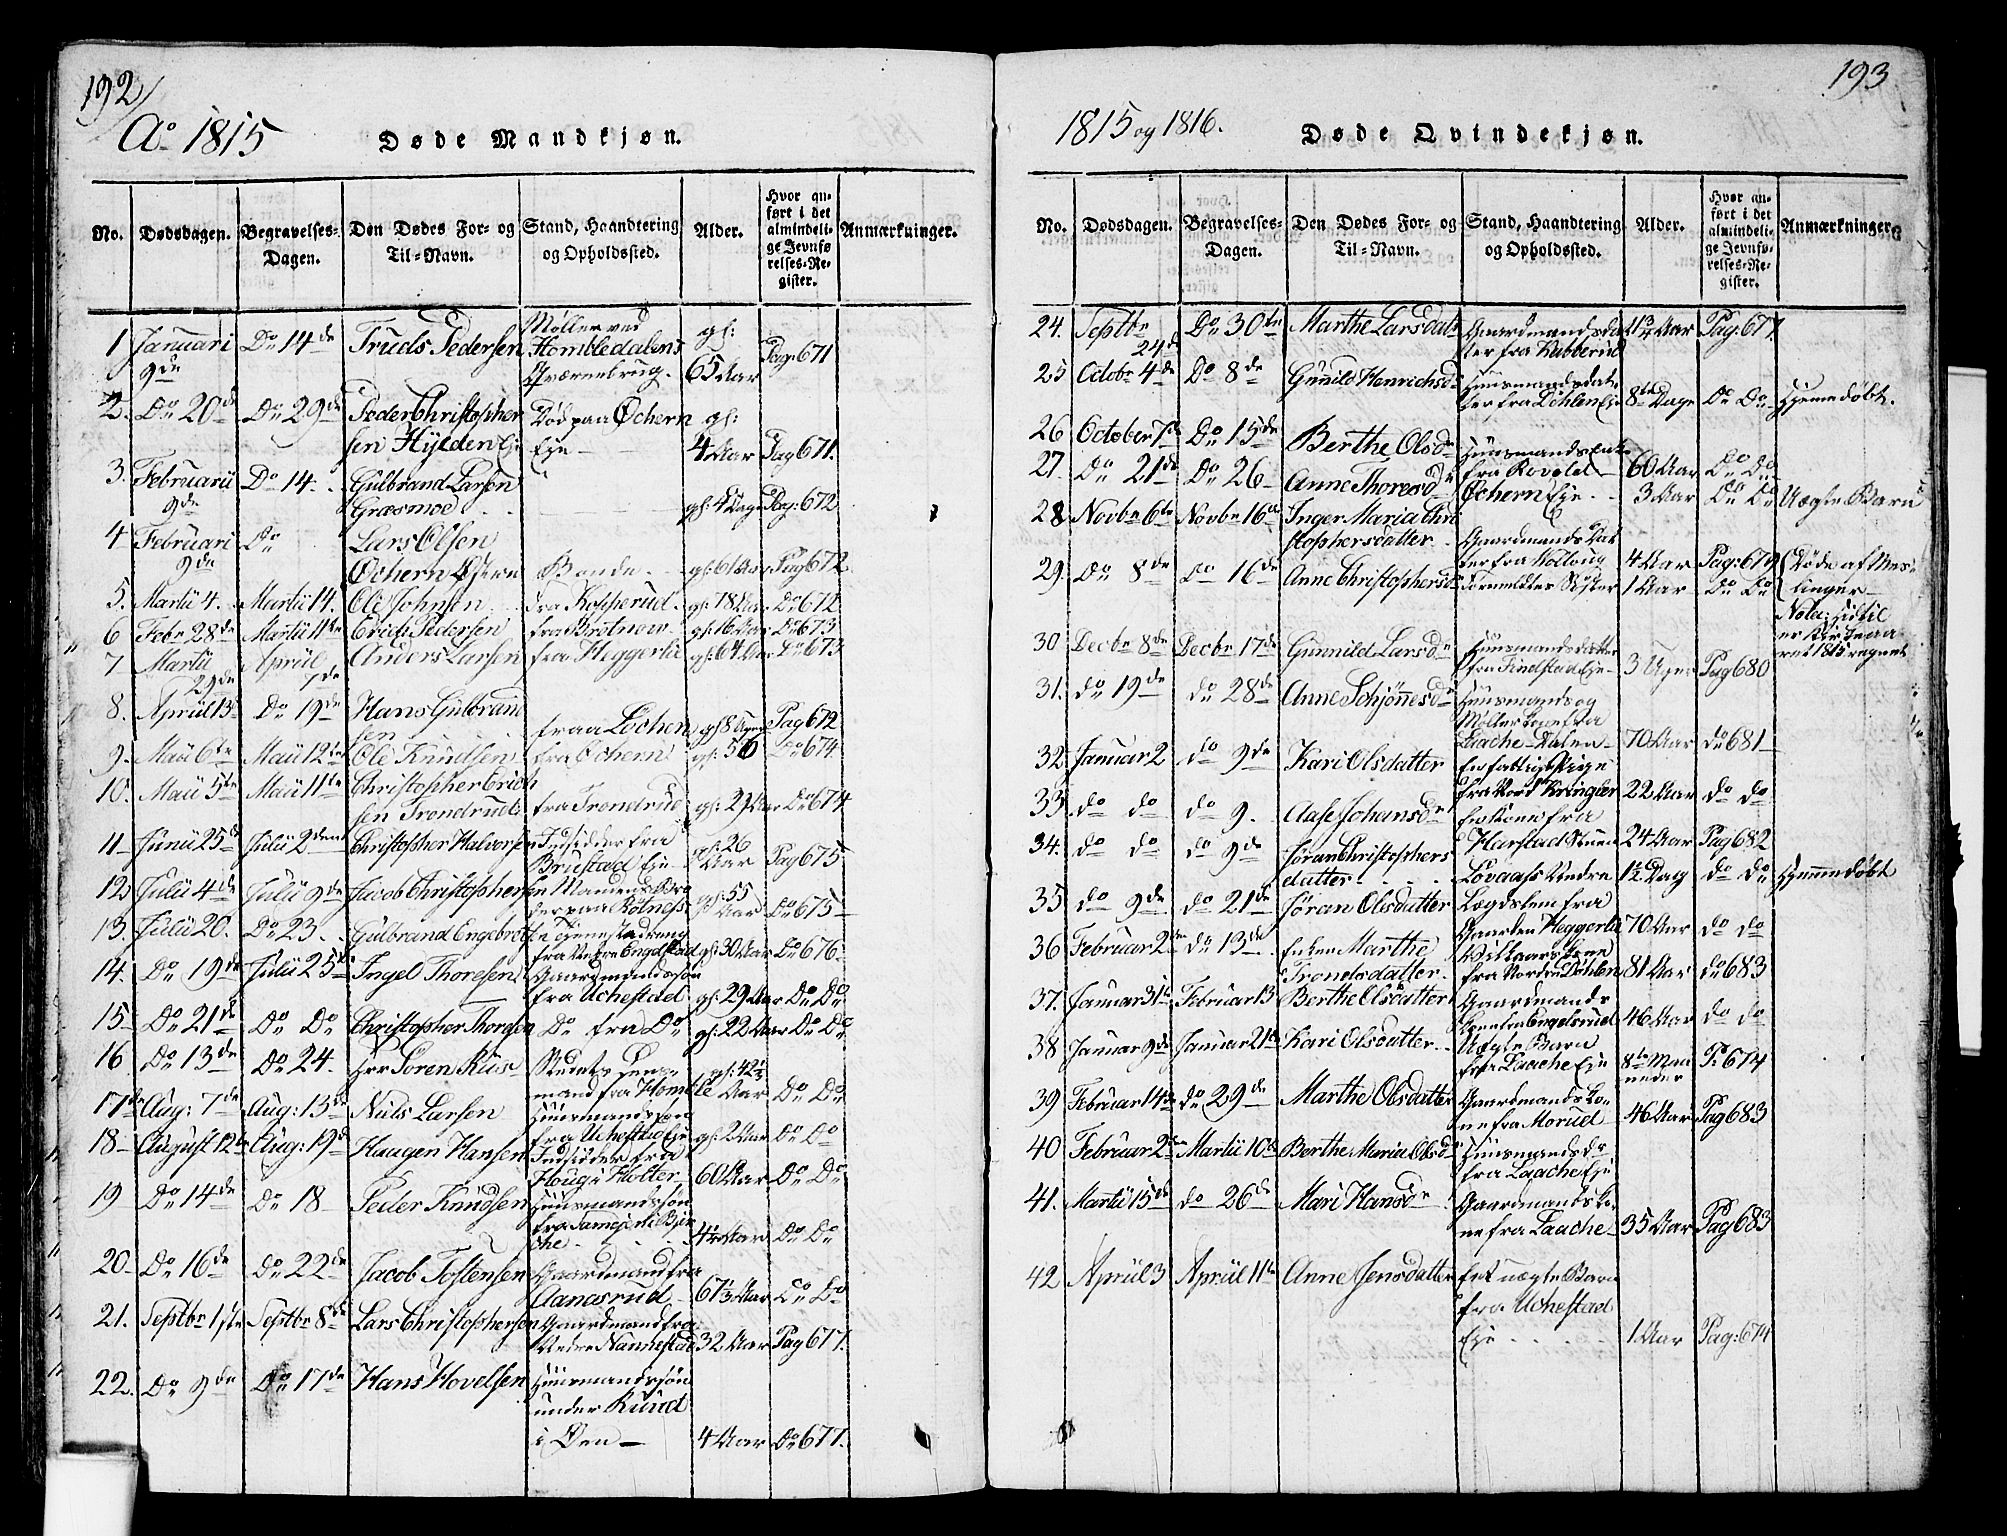 192
Ao 1815
Døde Mandkjøn.
No. Dødsdagen. Begravelses-Dagen. Den Dødes For- og Til-Navn. Stand, Haandtering og Opholdssted. Alder. Hvor anført i det almindelige Jevnførelses-Register. Anmærkninger.
1 Januari 9de Do 14de Truds Pedersen Møller ved Hombledalens Qværnebrug. gl: 65 Aar Pag: 671
2. Do 20de Do 29de Peder Christophersen Hylden Eje Død paa Ochern Eje gl: 4 Aar Pag 671.
3. Februarii 9de Do 14. Gulbrand Larsen Græsmoe gl: 4 Dage Pag: 672
4 Februari 9de Do Lars Olsen Ochern Bonde gl: 61 Aar Pag 672
5. Martii 4. Martii 14. Ole Johnsen fra Kopperud gl: 78 Aar Do 672
6 Febr 28de Martii 11te Erich Pedersen fra Brotnow gl: 16 Aar Do 673
7 Martii 29de Aprill 7de Anders Larsen fra Heggerlie gl: 64 Aar Do 673
8. Aprill 13de Do 19de Hans Gulbrandsen fraa Lochen gl 8 Pag 672
9. Maii 6te Maii 12te Ole Knudsen fra Ochern gl: 50 Do 674
10. Maii 5te Maii 11te Christopher Erichsen Trondrud fra Trondrud gl: 29 Aar Do 674
11 Junii 25de Julii 2den Christopher Halvorsen Indsidder fra Brustad Eje gl: 26 Aar Pag 675
12 Julii 4de Julii 9de Jacob Christophersen Mandens Broder paa Rotness gl: 55 Aar Do 675
13. Julii 20. Do 23. Gulbrand Engebretsen Tjenestedreng fra Nedre Engelstad gl: 30 Aar Do 676.
14. Do 19de Julii 25de Ingel Thoresen Gaardmandssøn fra Uchestad gl: 29 Aar Do Do
15 Do 21de Do Do Christopher Thorsen Do fra Do gl: 22 Aar Do Do
16. Do 13de Do 24. Hrr Søren Stedets mand fra Homble gl: 42½ Aar Do Do
17de Aug: 7de Aug: 13de Niels Larsen Huusmandssøn fra Uchestad Eje gl: 2 Aar Do Do
18 August 12te Aug: 19de Haagen Hansen Indsidder fra Houg i Holter 60 Aar Do Do
19 Do 14de Do 18 Peder Knudsen Huusmandssøn fra 4½ Aar Do Do
20 Do 16de Do 22de Jacob Tostensen Gaardmand fra Aanasrud 67½ Aar Do Do
21. Septbr 1ste Septbr 8de Lars Christophersen Gaardmand fra Nedre Nannestad 32 Aar Pag 677.
22. Do 9de Do 17de Hans Hovelsen Huusmandssøn under Ruud i Øen 4 Aar Do 677.
193
1815 og 1816.
Døde Qvindekjøn.
No. Dødsdagen. Begravelses-Dagen. Den Dødes For- og Til-Navn. Stand, Haandtering og Opholdssted. Alder. Hvor anført i det almindelige Jevnførelses-Register. Anmærkninger.
24. Septbr 24de Do 30te Marthe Larsdatr Gaardmandsdatter fra Kabberud Aar Pag: 677.
25 Octobr 4de Do 8de Gunild Henrichsdr Huusmandsdatter fra Døhlen Eje 8te Dage Do Do Hjemmedøbt.
26 October 7de Do 15de Berthe Olsdr Huusmandsenke fra 60 Aar Do Do
27. Do 21de Do 26 Anne Thoresdr Ochern Eje 3 Aar Do Do Uægte Barn
28 Novbr 6te Novbr 16de Inger Maria Christophersdatter Gaardmandsdatter fra Holloug 4 Aar Pag: 679 Døde af Meslinger
29. Do 8de Do 16de Anne Christophersdr Formeldtes Søster 1 Aar Do Do Nota: Hidtil er Kirkeaaret 1815 regnet
30 Decbr 8de Decbr 17de Gunnild Larsdr Huusmandsdatter fra Findstad Eje 3 Uger Pag 680
31. do 19de do 28de Anne Schjønnesdr Huusmands og Møllerkone fra Laache-Dalen 70 Aar do 681
32. Januar 2 do 9de Kari Olsdatter En fattig Pige fra Nord Kringler 22 Aar do do
33 do do do 9. Aase Johansdr En Kone fra Harstad 24 Aar Pag 682
34. do do do 9de Jøran Christophersdatter Lovaass Nedre 1½ Dag do do Hjemmedøbt
35 do 9de do 21de Jøran Olsdatter Lægdslem fra Gaarden Heggerlie 70 Aar do do
36 Februar 2den do 13de Enken Marthe Trondsdatter Wilkaarskone fra Nordre Døhlen 81 Aar do 683
37. Januar 31te Februar 13 Berthe Olsdatter Gaardmands Kone fra Engelsrud 46 Aar do do
38 Januar 9de Januar 21te Kari Olsdatter Uægte Barn fra Laache Eje 8te Maaneder P: 674
39 Februar 14de do 29de Marthe Olsdatter Gaardmandskone fra Morud 46 Aar Pag 683
40 Februar 2den Martii 10de Berthe Maria Olsdr Huusmandsdr fra Laache Eje
41. Martii 15de do 26de Mari Hansdr Gaardmandskone fra Laache 35 Aar Pag 683
42 Aprill 3 Aprill 11te Anne Jensdatter Eet uægte Barn fra Uchestad Eje 1 Aar Pag: 674